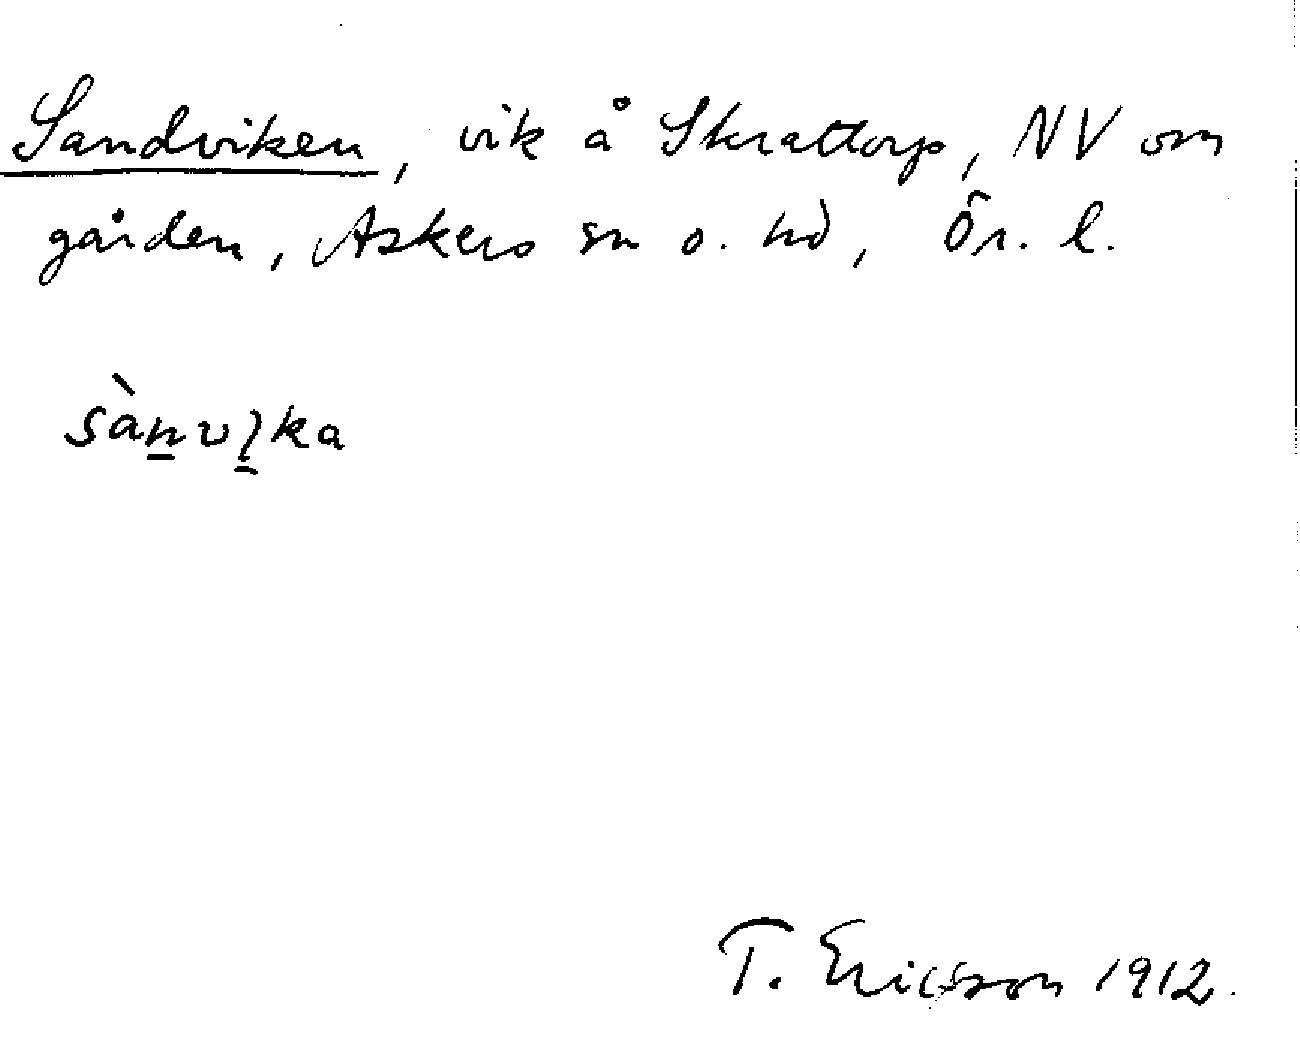 Sandviken, vik å Skrattorp, NV om
gården, Askers sn o. hd, Ör. l.
sànvı̣ka
T. Ericsson 1912.